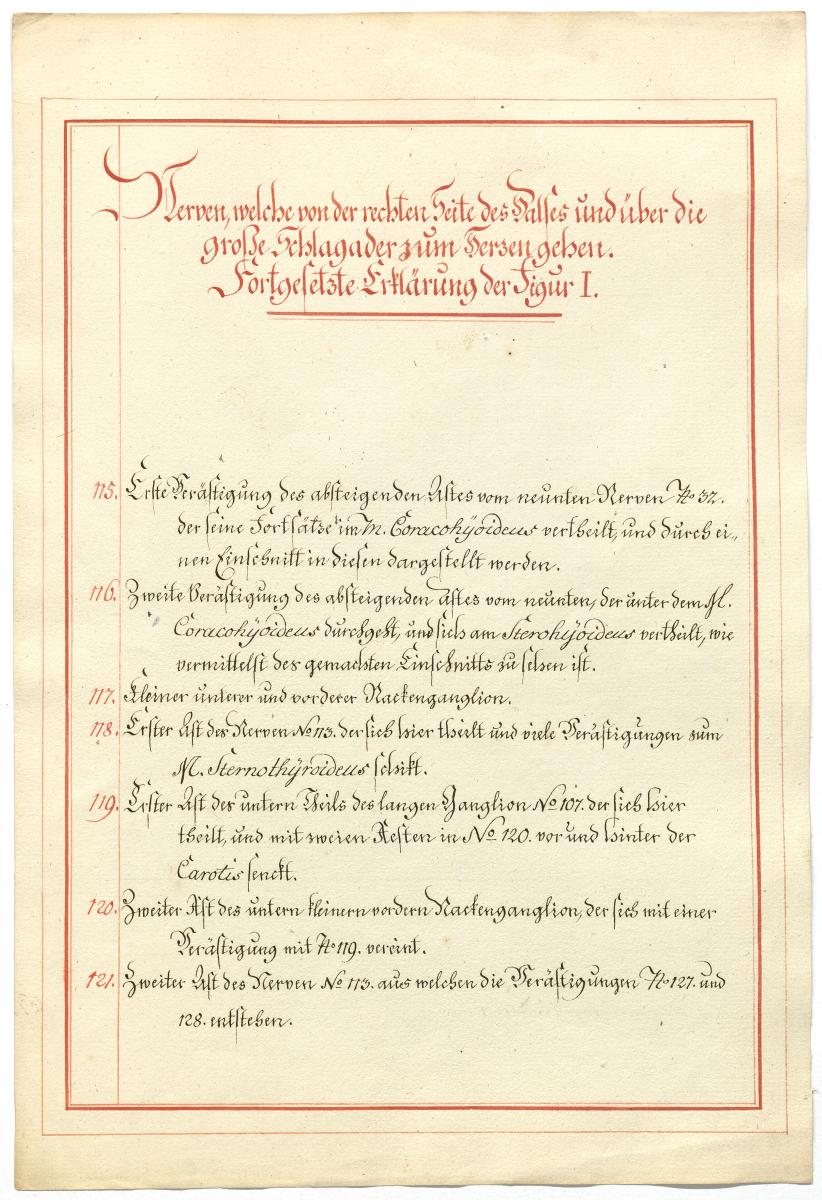 Nerven, welche von der rechten Seite des Halses und über die
große Schlagader zum Herzen gehen.
Fortgesetzte Erklärung der Figur I.
115. Erste Verästigung des absteigenden Astes vom neunten Nerven No 32.
der seine Fortsätze im M. Coracohÿoideus vertheilt, und durch ei„
nen Einschnitt in diesen dargestellt werden.
116. Zweite Verästigung des absteigenden Astes vom neunten, der unter dem M.
Coracohÿoideus durchgeht, und sich am Sterohÿoideus vertheilt, wie
vermittelst des gemachten Einschnitts zu sehen ist.
117. Kleiner unterer und vorderer Nackenganglion.
118. Erster Ast des Nerven No 113. der sich hier theilt und viele Verästigungen zum
M. Sternothÿroideus schikt.
119. Erster Ast des untern Theils des langen Ganglion No 107. der sich hier
theilt, und mit zweien Aesten in No 120. vor und hinter der
Carotis senckt.
120. Zweiter Ast des untern kleinern vordern Nackenganglion, der sich mit einer
Verästigung mit No 119. vereint.
121. Zweiter Ast des Nerven No 113. aus welchen die Verästigungen No 127. und
128. entstehen.